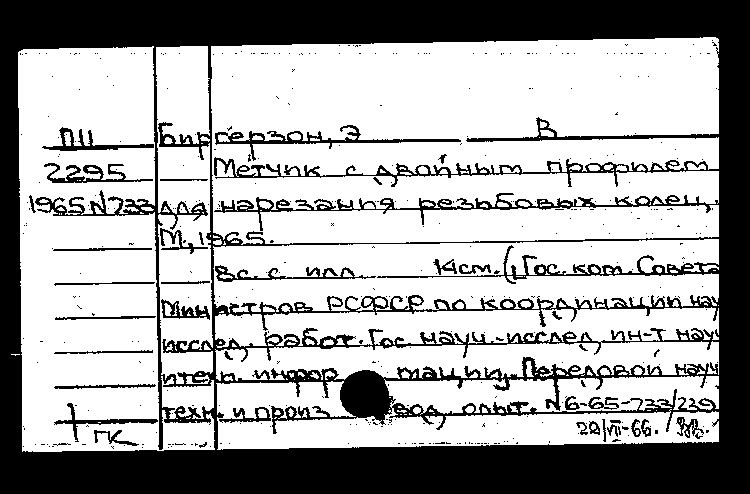 ПП Биргерзон, Э В
2295 Метчик с двойным профилем
1965 N733 для нарезания резьбовых колец,
М., 1965.
8с. с илл. 14см. (Гос. ком. Совета
Министров РСФСР по координации нау
исслед. работ. Гос науч.-исслед, ин-т науч
и техн. информации. Передовой науч
техн. и производ, опыт. N6-65-733/239
ГК 22/VII-66.